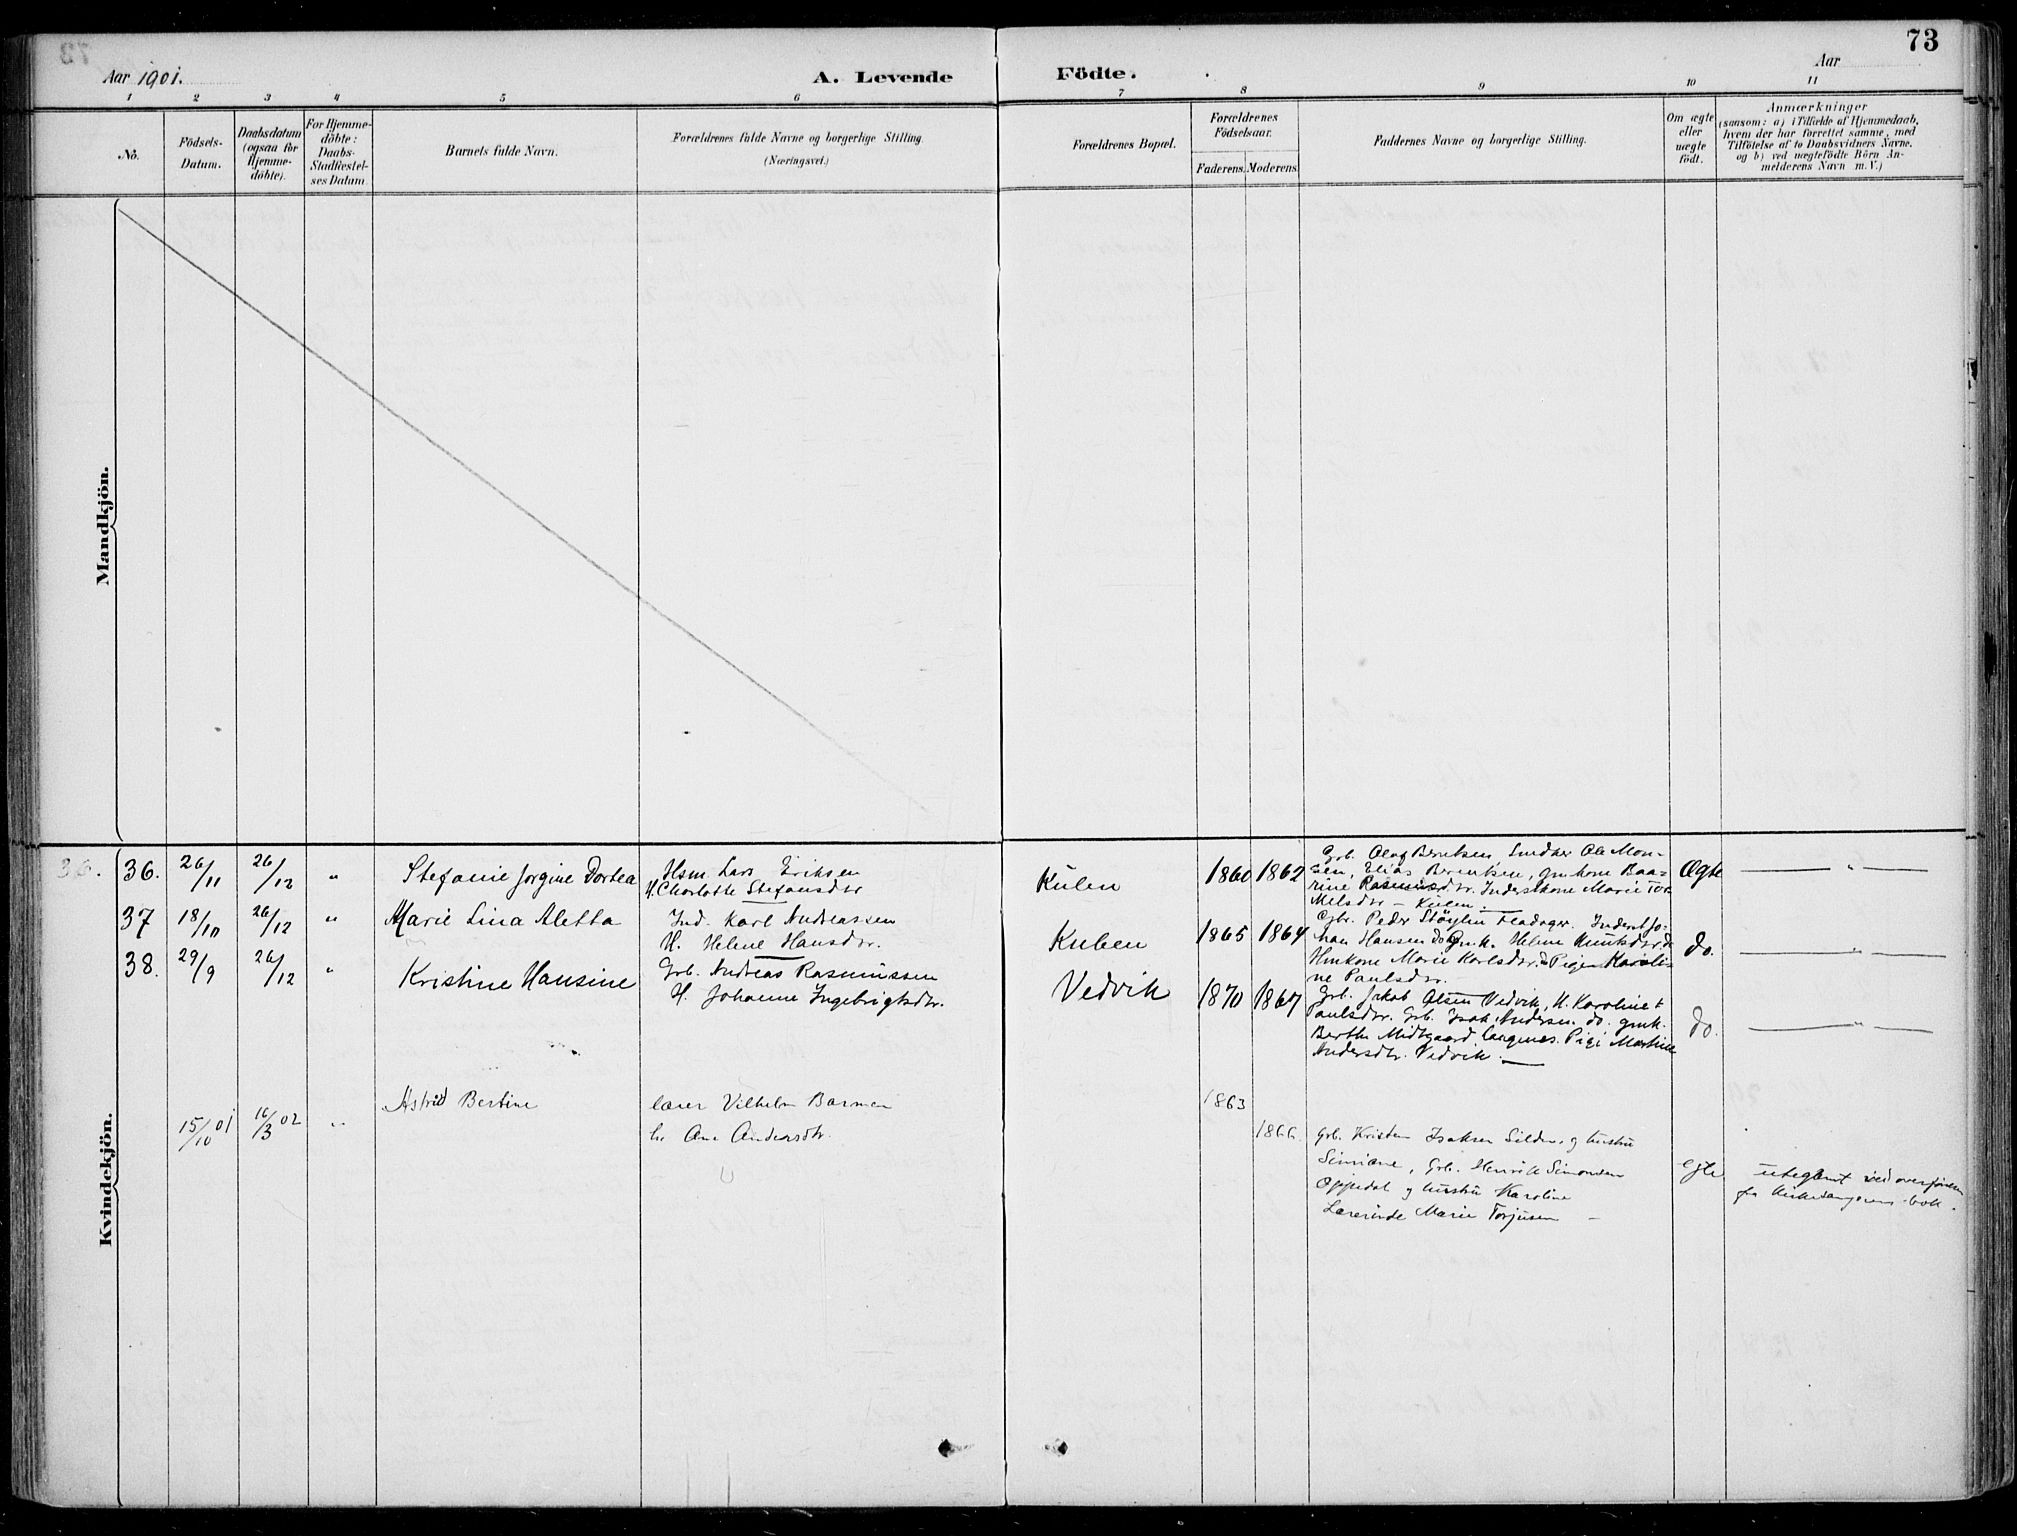 73
Aar 1901.
A. Levende Födte.
Aar
1 2 3 4 5 6 7 8 9 10 11
No.
Födsels-Datum.
Daabsdatum (ogsaa for Hjemme-döbte).
For Hjemme-döbte: Daabs-Stadfæstel-ses Datum
Barnets fulde Navn.
Forældrenes fulde Navne og borgerlige Stilling
(Næringsvei.)
Forældrenes Bopæl.
Forældrenes Födselsaar.
Faderens. Moderens.
Faddernes Navne og borgerlige Stilling.
Om ægte eller uægte födt.
Anmærkninger
(saasom: a) i Tilfælde af Hjemmedaab,
hvem der har forrettet samme, med
Tilföielse af to Daabsvidners Navne.
og b) ved uægtefödte Börn An-
melderens Navn m. V.)
Mandkjön.
Kvindekjön.
36.
36. 26/11 26/12 " Stefanie Jorgine Dortea
Hsm Lars Eriksen
H. Charlotte Stefansdtr
Kulen 1860 1862
Grb. Olaf Berntsen, Snedker Ole Mon-
sen, Elias Berntsen, gmkone Baa-
rine Rasmusdtr. Inderstkone Marie Tor
Nelsdtr – Kulen.
Ægte — " —
37 18/10 26/12 " Marie Lina Aletta
Ind. Karl Andreassen
H. Helene Hansdtr.
Kulen 1865 1864
Grb. Peder Støylen Inderst Jo-
han Hansen do Gmk. Helene Knutsdtr. do
Hmkone Marie Karlsdtr. do Pige Karoli-
ne Paulsdtr.
do. — " —
38. 29/9 26/12 " Kristine Hansine
Grb. Andreas Rasmussen
H. Johanne Ingebrigtsdtr.
Vedvik 1870 1867
Grb. Jakob Olsen Vedvik, H. Karoline
Paulsdtr. Grb. Isak Andersen do. gmk.
Berthe Midtgaard Pige Martine
Andersdtr. Vedvik.
do. — " —
15/10 01 16/3 02 " Astrid Bertine
lærer Vilhelm Barmen
h. Ane Andersdtr.
1863
1866.
Grb. Kristen Isaksen Silden, og hustru
Simiane, Grb. Henrik Simonsen
Oppedal og hustru Karoline
Lærerinde Marie Torjusen –
egte
uteglemt ved overførelsen
fra kirkesangerens bok.